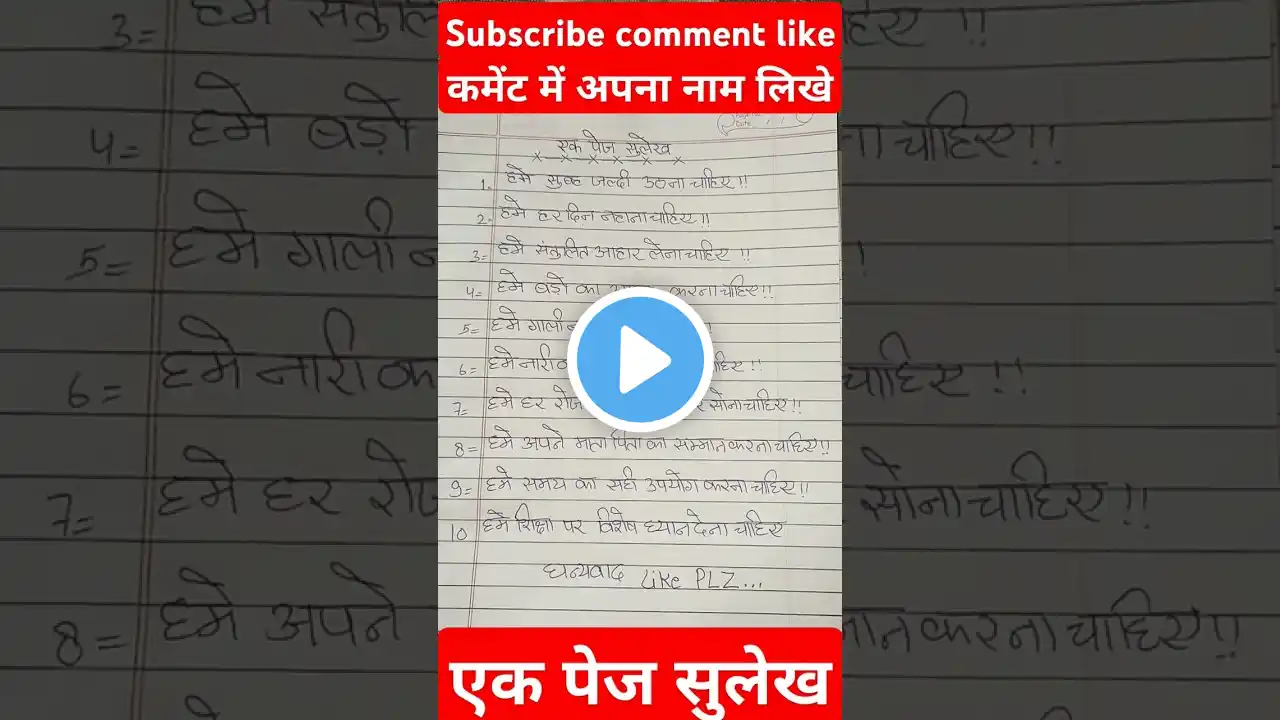 Subscribe comment like
कमेंट में अपना नाम लिखे
एक पेज सुलेख
1. हमे सुबह जल्दी उठना चाहिए!!
2. हमे हर दिन नहाना चाहिए!!
3= हमे संतुलित आहार लेना चाहिए !!
4= हमे बड़ो का करना चाहिए!!
5= हमे गाली
6= हमे नारी चाहिए !!
7= हमे हर रोज सोना चाहिए!!
8= हमे अपने माता पिता का सम्मान करना चाहिए!!
9= हमे समय का सही उपयोग करना चाहिए!!
10 हमे शिक्षा पर विशेष ध्यान देना चाहिए
धन्यवाद Like PLZ...
एक पेज सुलेख